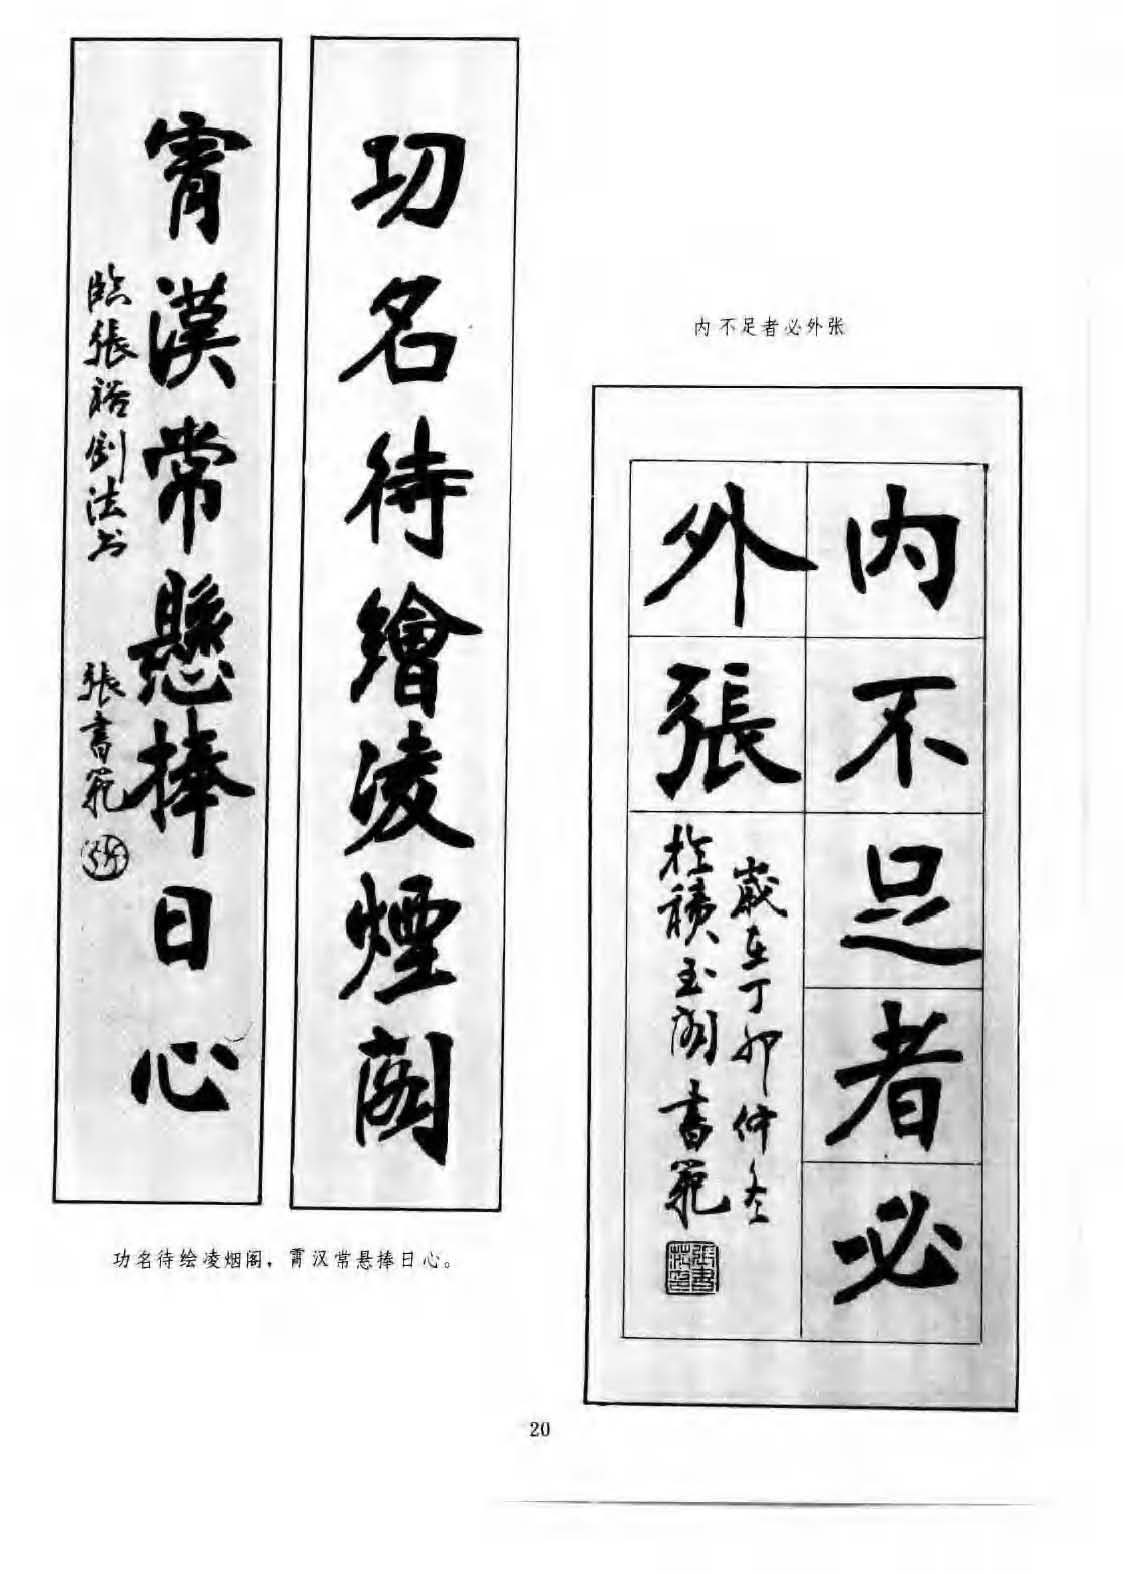 功名待繪凌煙閣
霄漢常懸捧日心
臨張裕釗法書
張書範
功名待绘凌烟阁，霄汉常悬捧日心。
内不足者必外张
内不足者必
外張
歲在丁卯仲冬
於積玉閣書範
張書範印
20